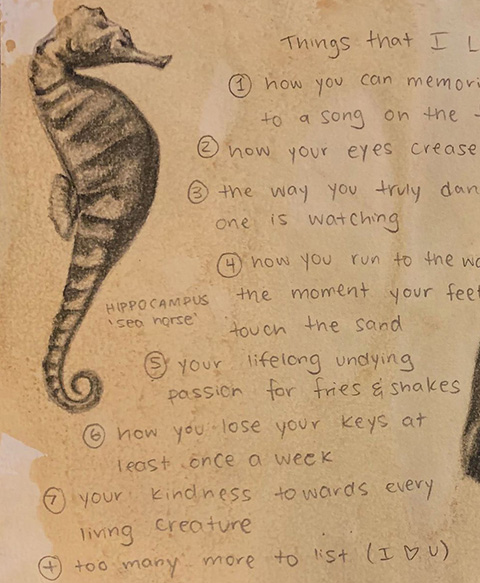 Things that I L
① how you can memori
to a song on the
② how your eyes crease
③ the way you truly dan
one is watching
④ how you run to the wa
the moment your feet
touch the sand
HIPPOCAMPUS
'sea horse'
⑤ your lifelong undying
passion for fries & shakes
⑥ how you lose your keys at
least once a week
⑦ your kindness towards every
living creature
⊕ too many more to list (I ♡ U)